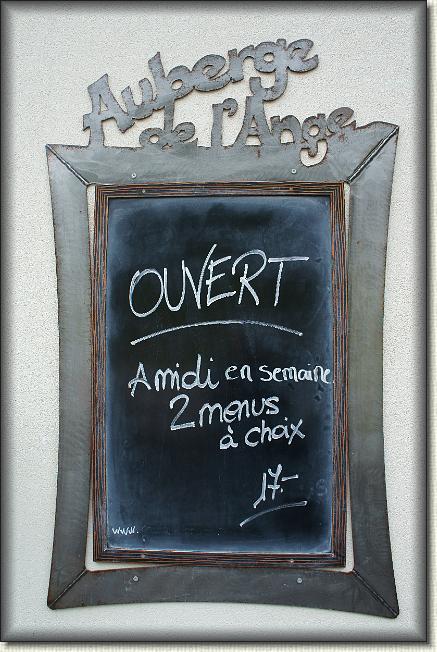 Auberge
de l'Ange
OUVERT
A midi en semaine
2 menus
à choix
17.-
www.